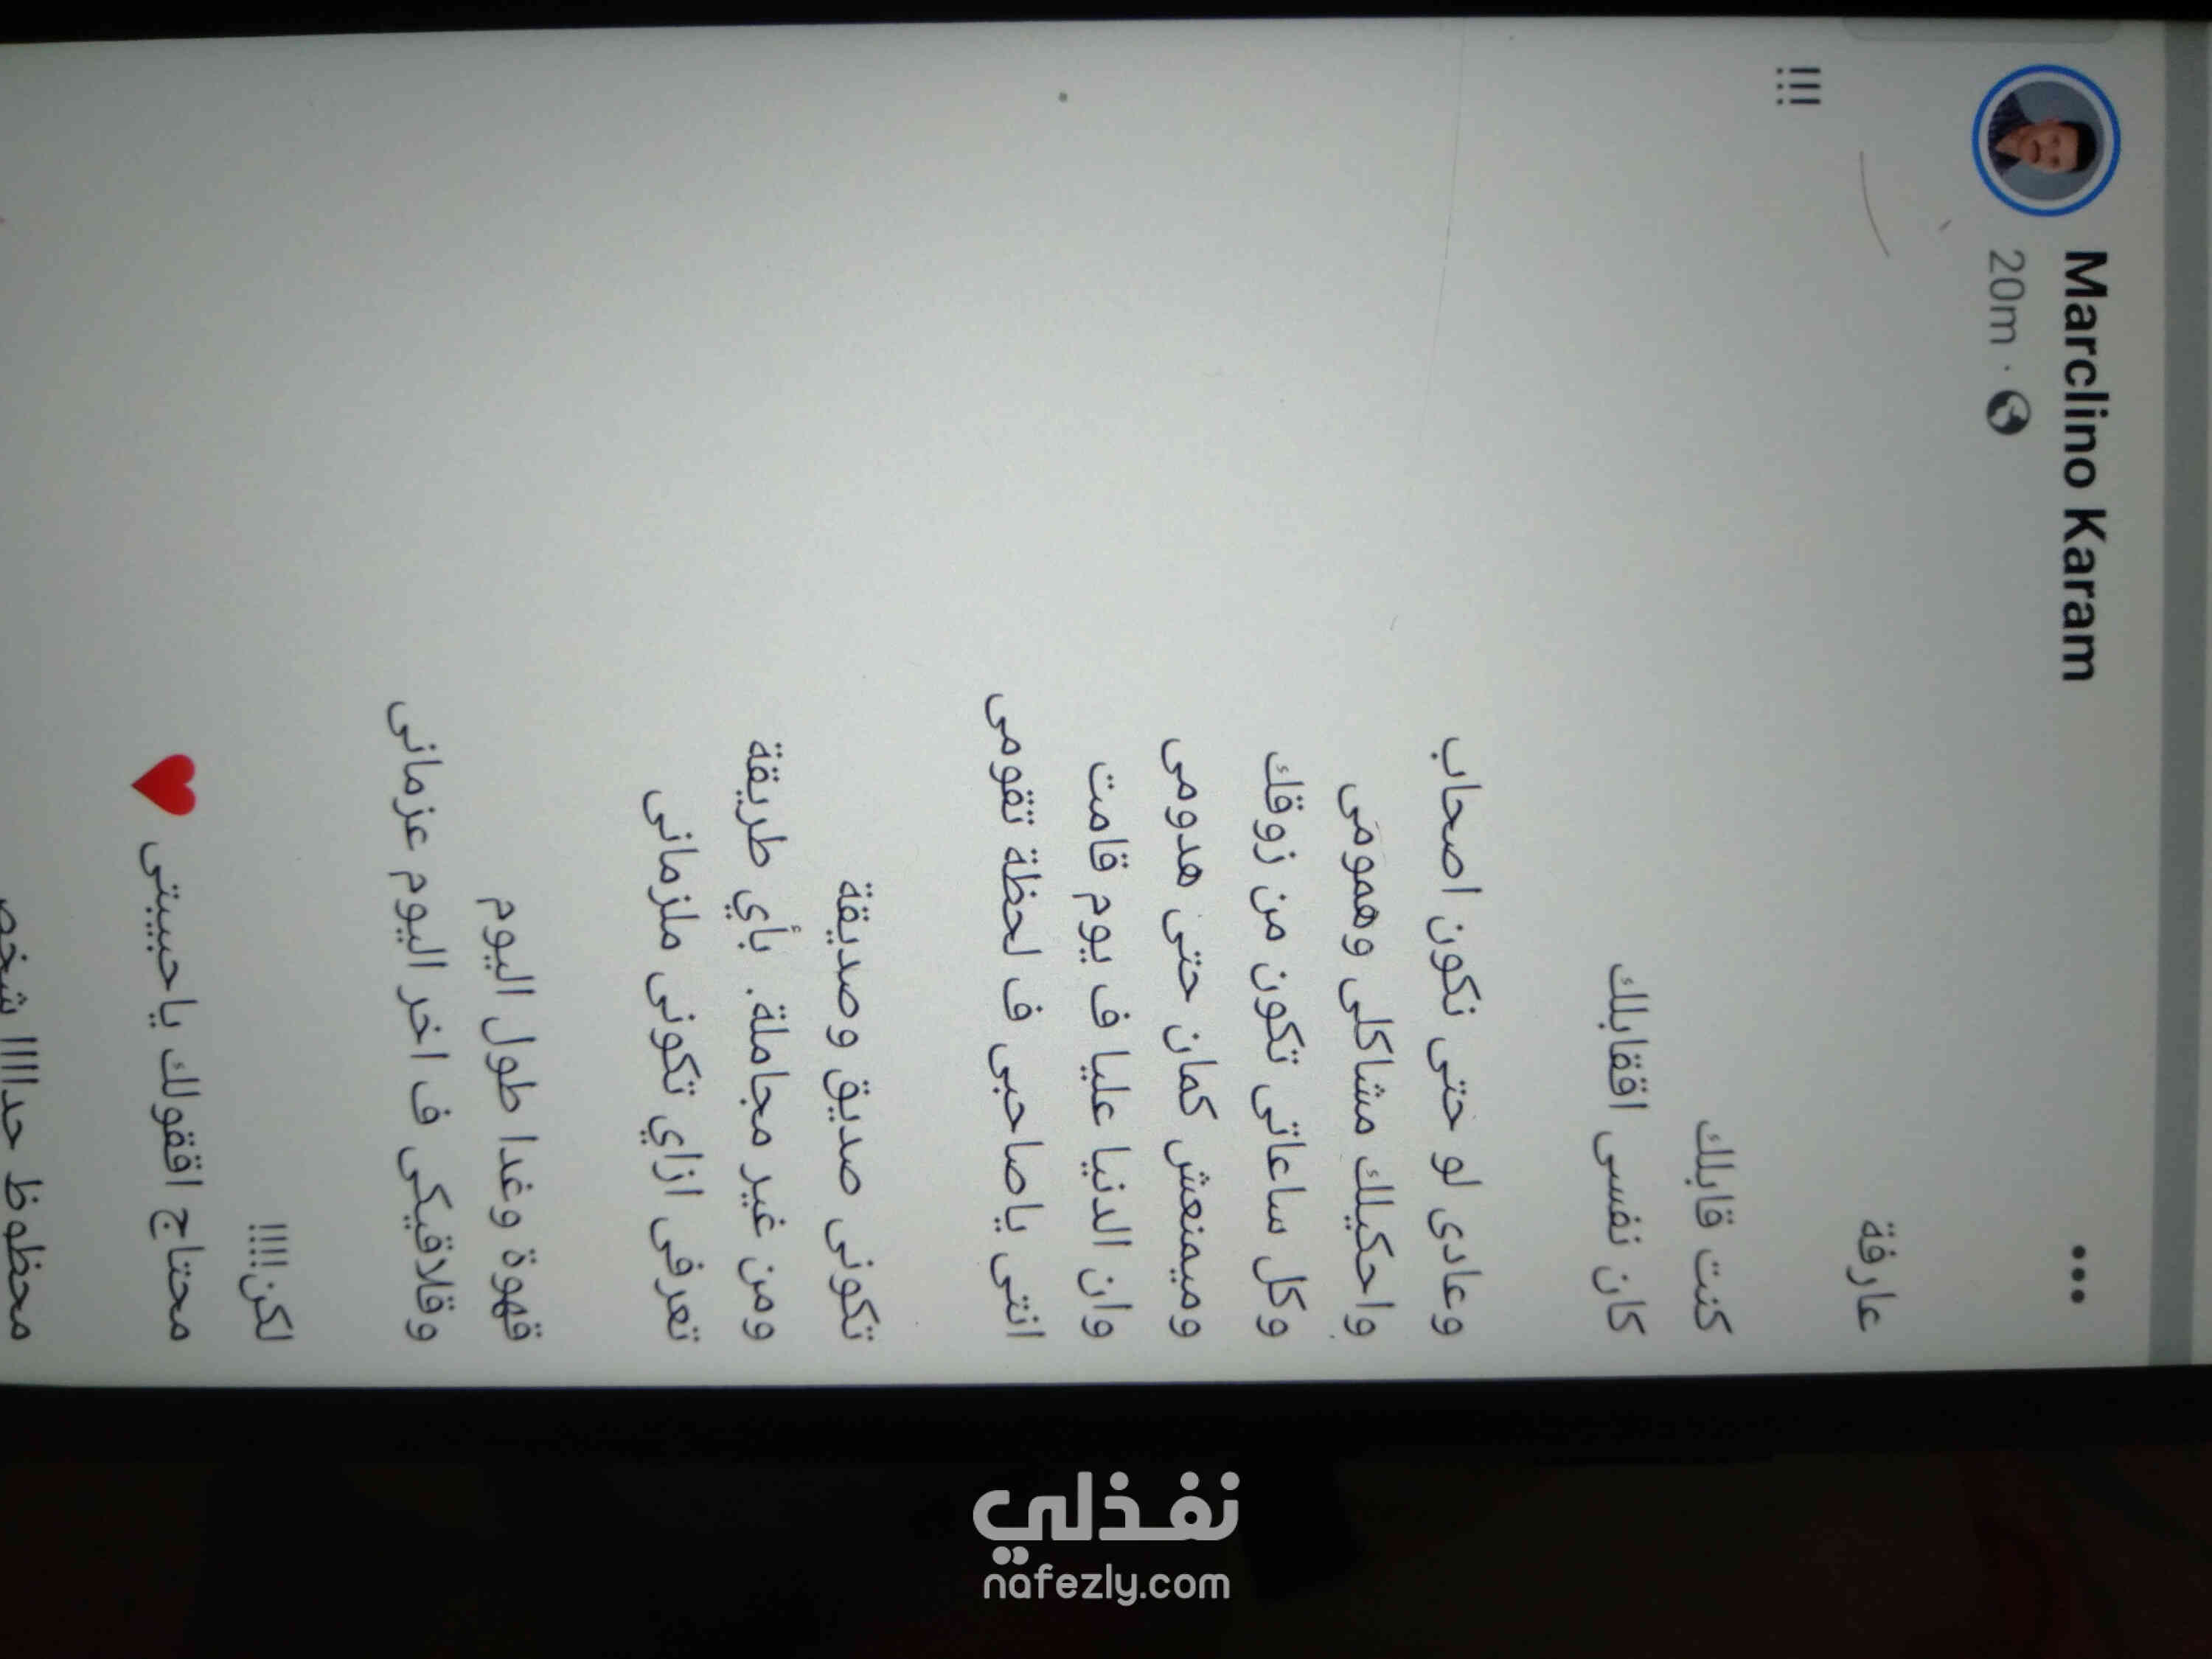 Marclino Karam
20m ·
•••
عارفة
!!!
كنت قابلك
كان نفسى اققابلك
وعادى لو حتى نكون اصحاب
واحكيلك مشاكلى وهمومى
وكل ساعاتى تكون من زوقك
وميمنعش كمان حتى هدومى
وان الدنيا عليا ف يوم قامت
انتى ياصاحبى ف لحظة تقومى
تكونى صديق وصديقة
ومن غير مجاملة. بأي طريقة
تعرفى ازاي تكونى ملزمانى
قهوة وغدا طول اليوم
وقلاقيكى ف اخر اليوم عزمانى
لكن!!!!!
محتاج اققولك ياحبيبتى ❤️
محظوظ حداااا شخص
نفذلي
nafezly.com